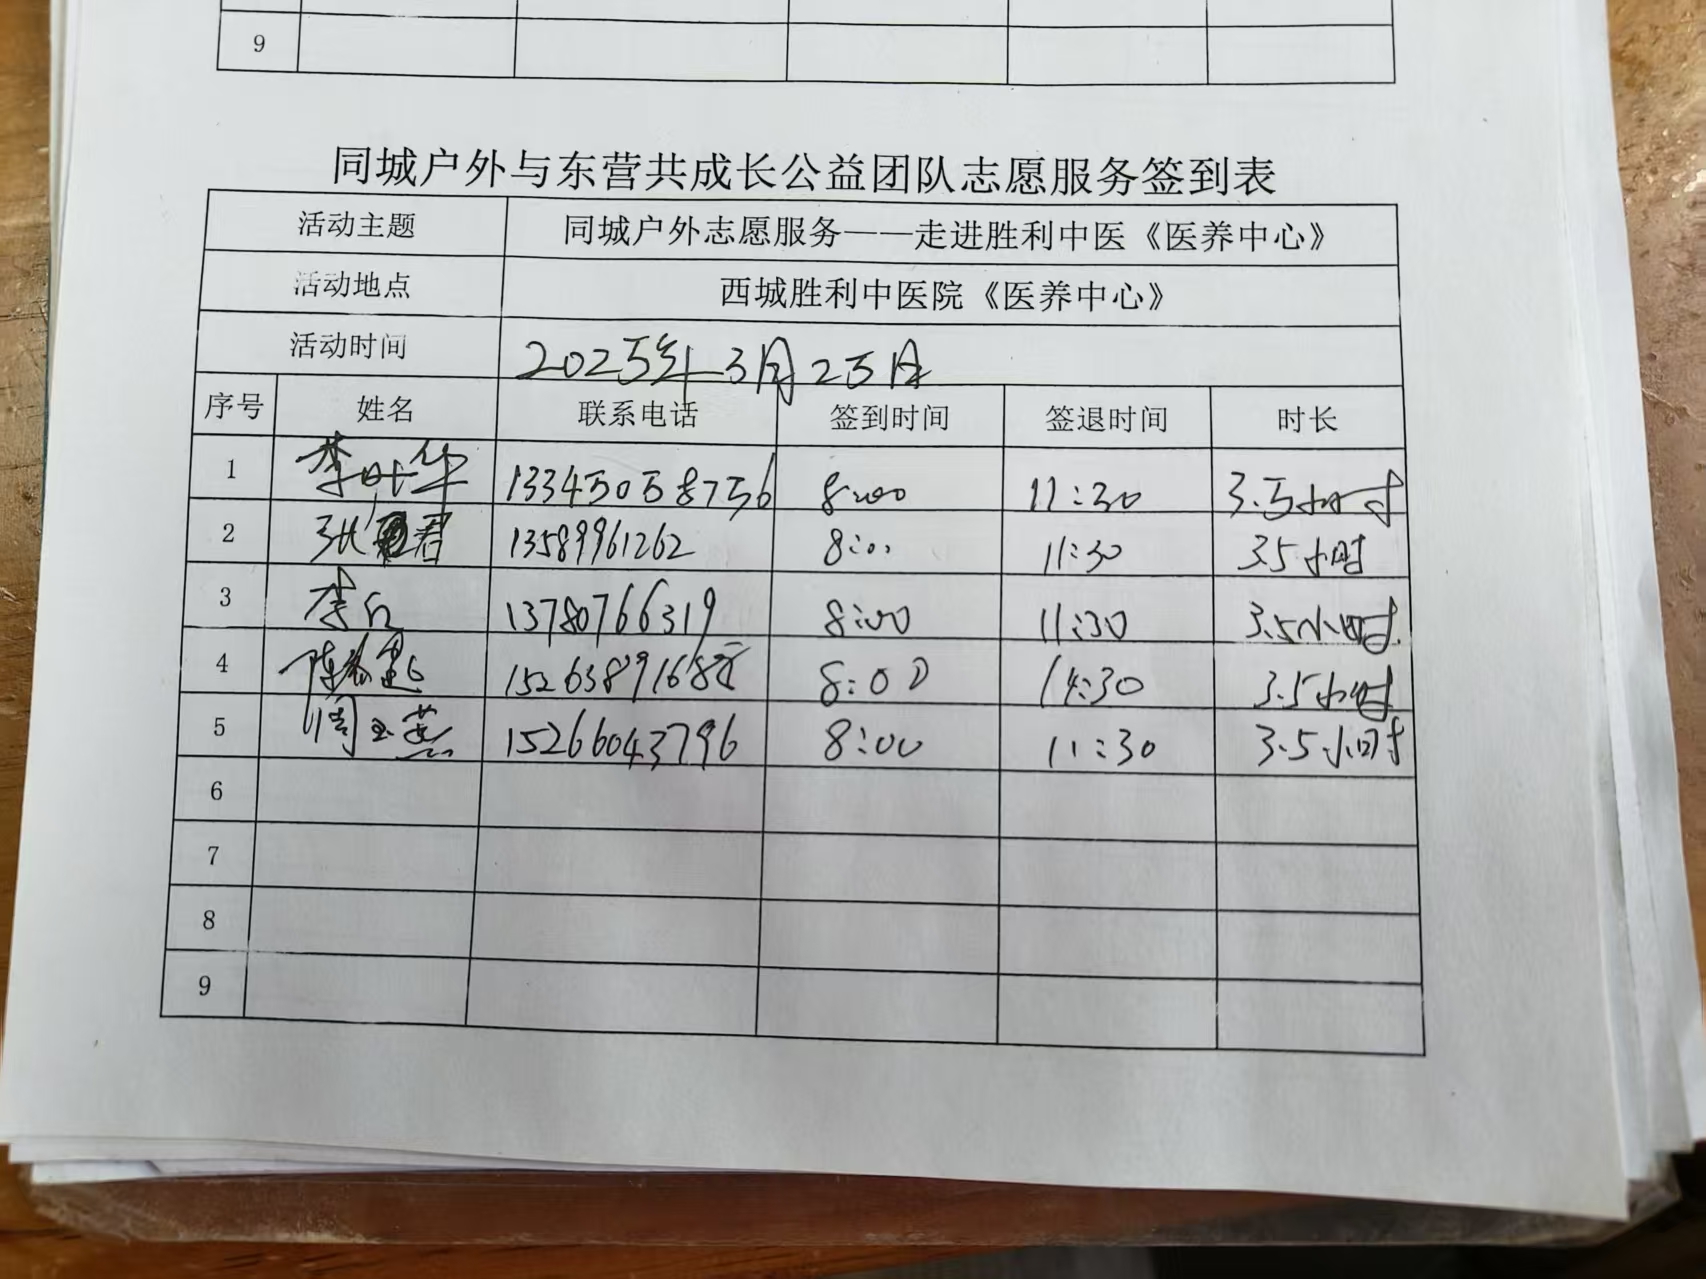 9
同城户外与东营共成长公益团队志愿服务签到表
活动主题 同城户外志愿服务——走进胜利中医《医养中心》
活动地点 西城胜利中医院《医养中心》
活动时间 2025年3月25日
序号 姓名 联系电话 签到时间 签退时间 时长
1 李叶华 13345058756 8:00 11:30 3.5小时
2 张 君 13589961262 8:00 11:30 3.5小时
3 李 13780766319 8:00 11:30 3.5小时
4 陈 1526389168 8:00 11:30 3.5小时
5 周玉燕 15266043796 8:00 11:30 3.5小时
6
7
8
9